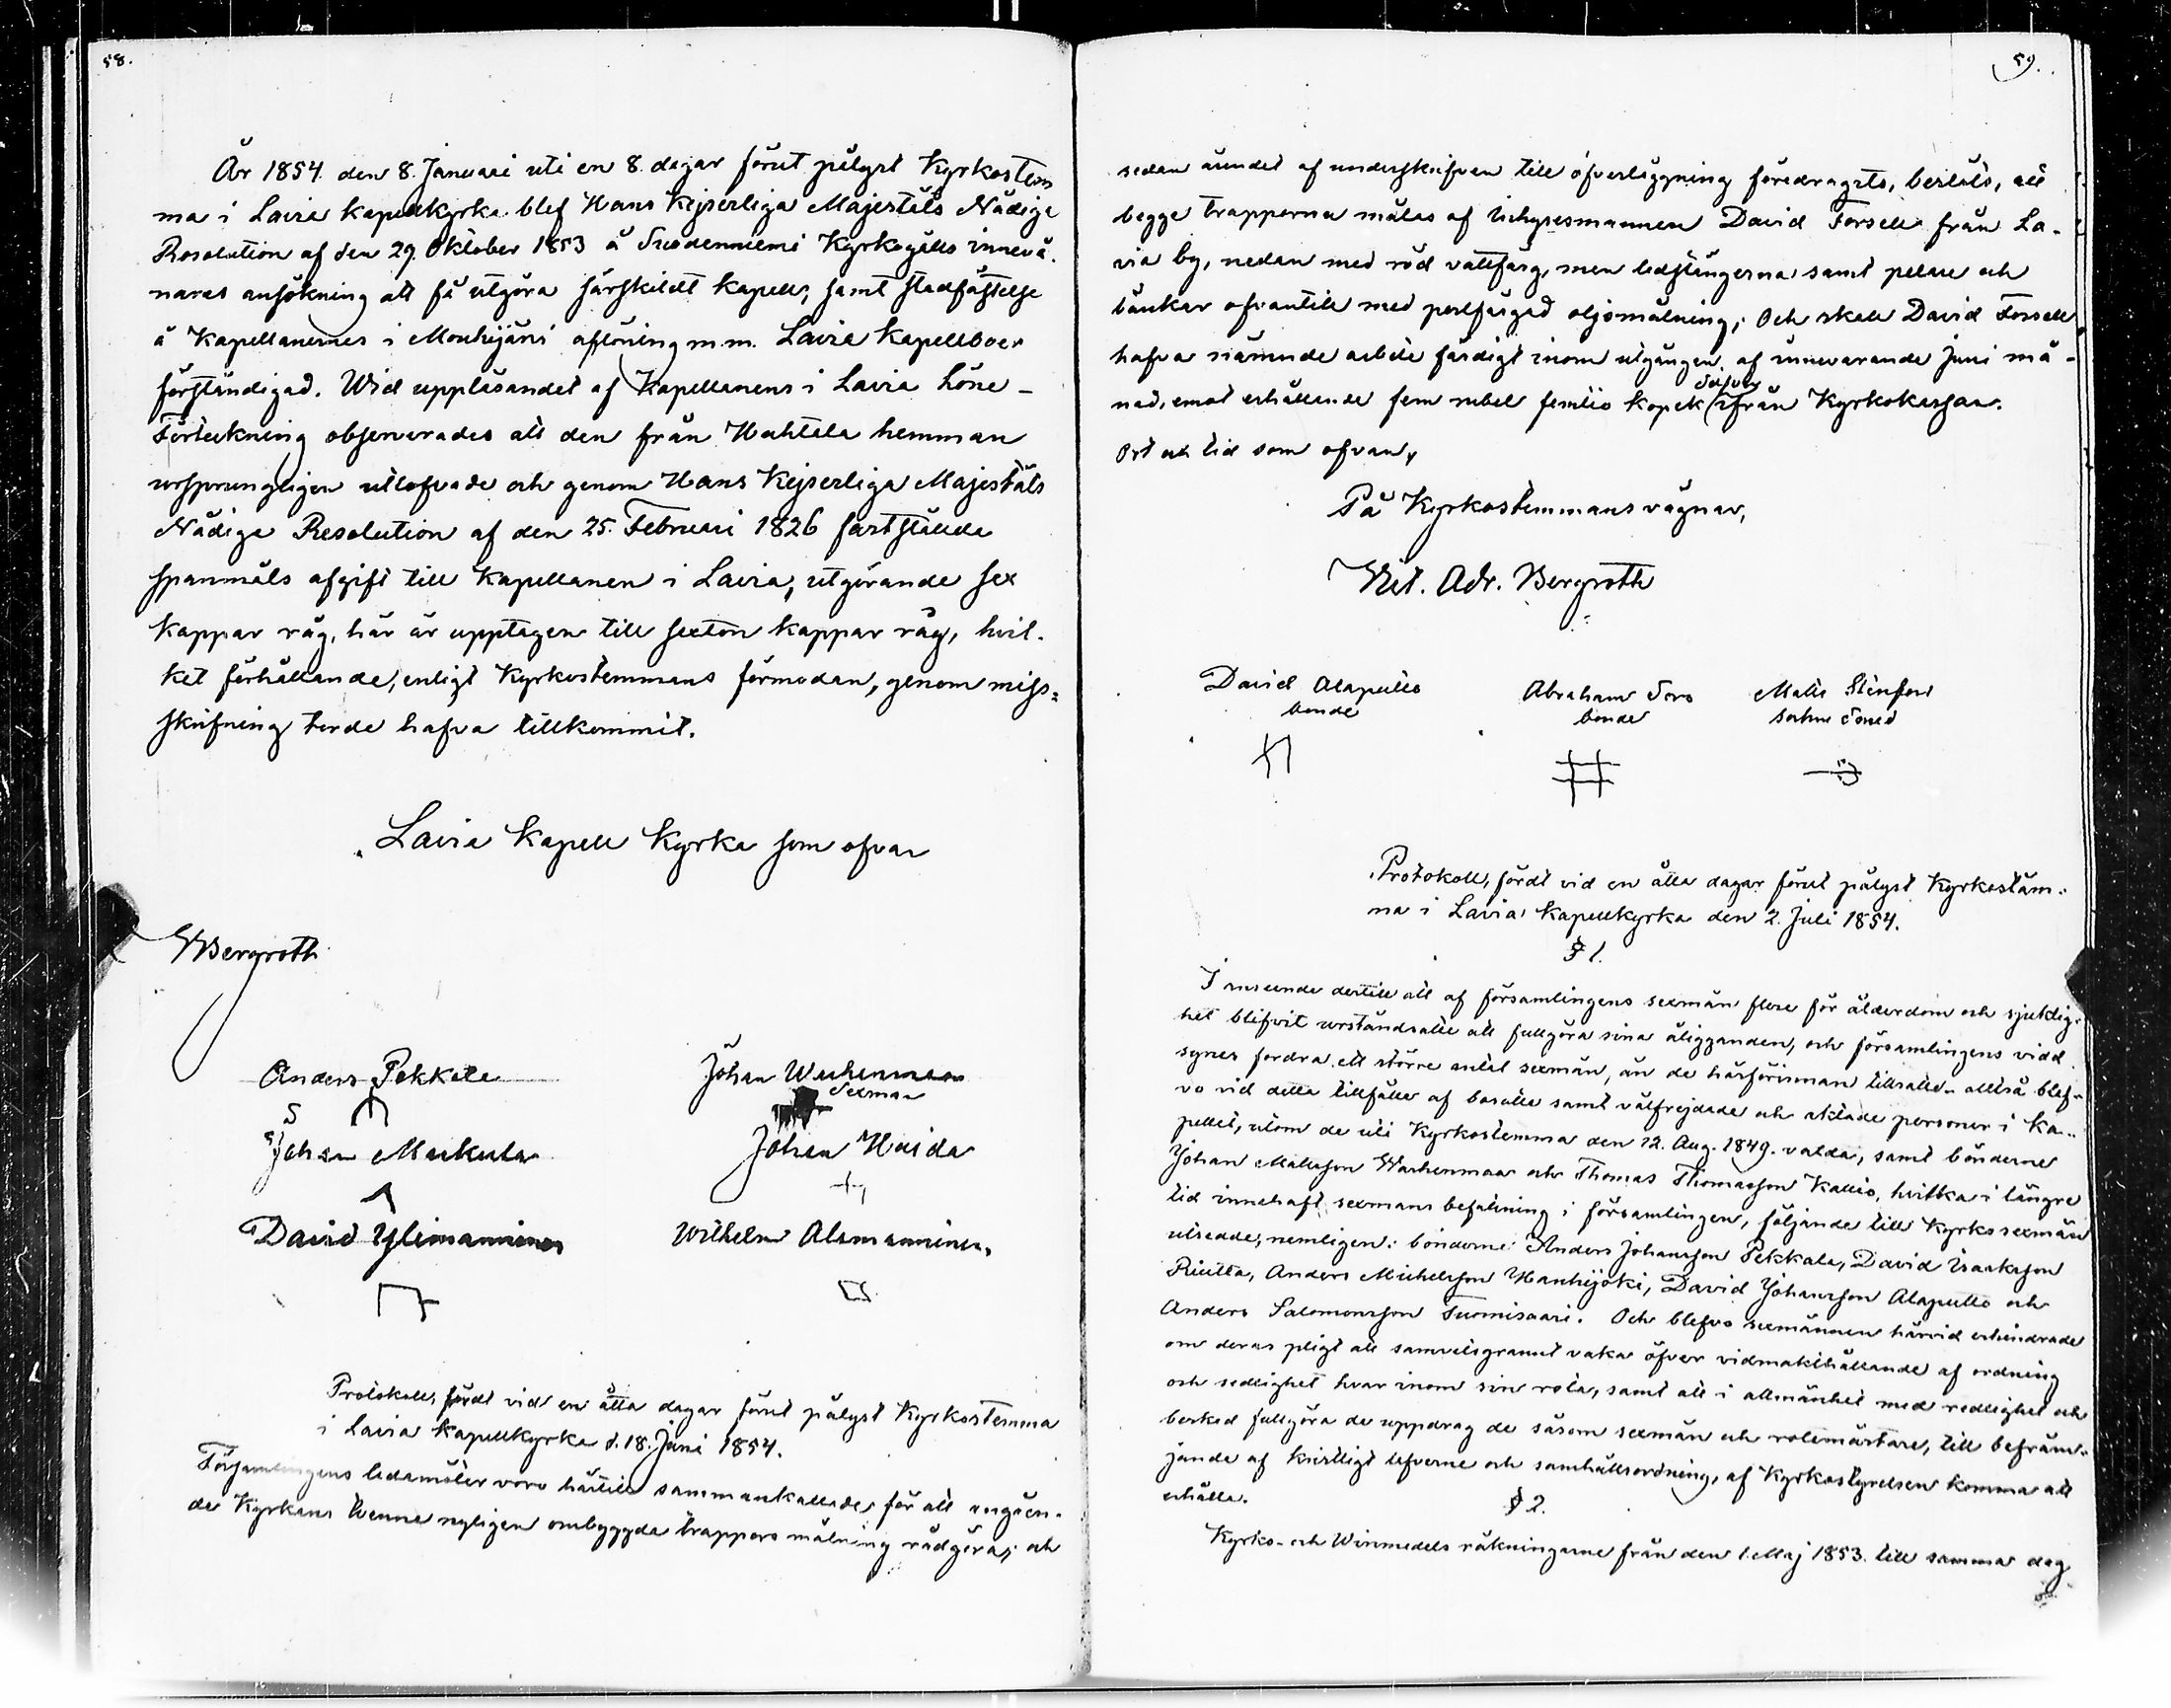 58.
År 1854 den 8. Januari uti en 8. dagar förut pålyst Kyrkostem
ma i Lavia Kapellkyrka blef Hans Kejserliga Majestäts Nådiga
Resolution af den 29. Oktober 1853 å Suodenniemi Kyrkogälls inneva-
nares ansökning att få utgöra särskildt kapell, samt stadfästelse
å Kapellanernes i Mouhijärvi aflöning m.m. Lavia Kapellboer
förständigad. Wid uppläsandet af Kapellanens i Lavia Löne-
Förteckning observerades att den från Huhtala hemman
ursprungligen utlofvade och genom Hans Kejserliga Majestäts
Nådiga Resolution af den 25. Februari 1826 fastställda
spanmåls afgift till Kapellanen i Lavia, utgörande sex
kappar råg, här är upptagen till sexton kappar råg, hvil-
ket förhållande, enligt Kyrkostemmans förmodan, genom miss-
skrifning torde hafva tillkommit.
Lavia Kapell Kyrka som ofvan
WBergroth
Anders Pekkala
Johan
Sexman
S
Johan Muckula
Johan Haida
David Ylimanninen
Wilhelm Alamanninen
Protokoll, fördt vid en åtta dagar förut pålyst Kyrkostemma
i Lavia Kapellkyrka d. 18. Juni 1854.
Församlingens ledamöter voro härtill sammankallade, för att angåen-
de Kyrkans tvenne nyligen ombyggda trappors målning rådgöra; och
59.
sedan ärendet af underskrifven till öfverläggning föredragits, beslöts, att
begge trapporna målas af Inhysesmannen David Forsell från La-
via by, nedan med röd vattfärg, men ledstängerna samt pelare och
bänkar ofvantill med perlfärgad oljemålning; Och skall David Forsell
hafva nämnde arbete färdigt inom utgången af innevarande Juni må-
nad, emot erhållande fem rubel femtio kopek silfver från Kyrkokassan.
Ort och tid som ofvan,
På Kyrkostemmans vägnar,
Vilh. Adr. Bergroth
David Alapullo
bonde
Abraham Soro
bonde
Matts Stenfors
sockne smed
Protokoll, fördt vid en åtta dagar förut pålyst Kyrkostäm-
na i Lavia Kapellkyrka den 2. Juli 1854.
§ 1.
I anseende dertill att af församlingens sexmän flere för ålderdom och sjuklig-
het blifvit urståndsatte att fullgöra sina åligganden, och församlingens vidd
synes fordra ett större antal sexmän, än de härförinnan tillsatte - alltså blef-
vo vid detta tillfälle af bosatte samt välfrejdade och aktade personer i Ka-
pellet, utom de uti Kyrkostemma den 12. Aug. 1849. valda, samt bönderne
Johan Mattsson Wanhenmaa och Thomas Thomasson Kallio, hvilka i längre
tid innehaft sexmans befattning i församlingen, följande till Kyrkosexmän
utsedde, nemligen: bönderne Anders Johansson Pekkala, David Isaaksson
Riutta, Anders Michelsson Hanhijoki, David Johansson Alapullo och
Anders Salomonsson Suomisaari. Och blefvo sexmännen härvid erhindrade
om deras pligt att samvetsgrannt vaka öfver vidmakthållande af ordning
och sedlighet hvar inom sin rota, samt att i allmänhet med redlighet och
besked fullgöra de uppdrag de såsom sexmän och rotemästare, till befräm-
jande af kristligt lefverne och samhällsordning, af Kyrkostyrelsen komma att
erhålla.
§ 2.
Kyrko- och Winmedels räkningarne från den 1. Maj 1853. till samma dag